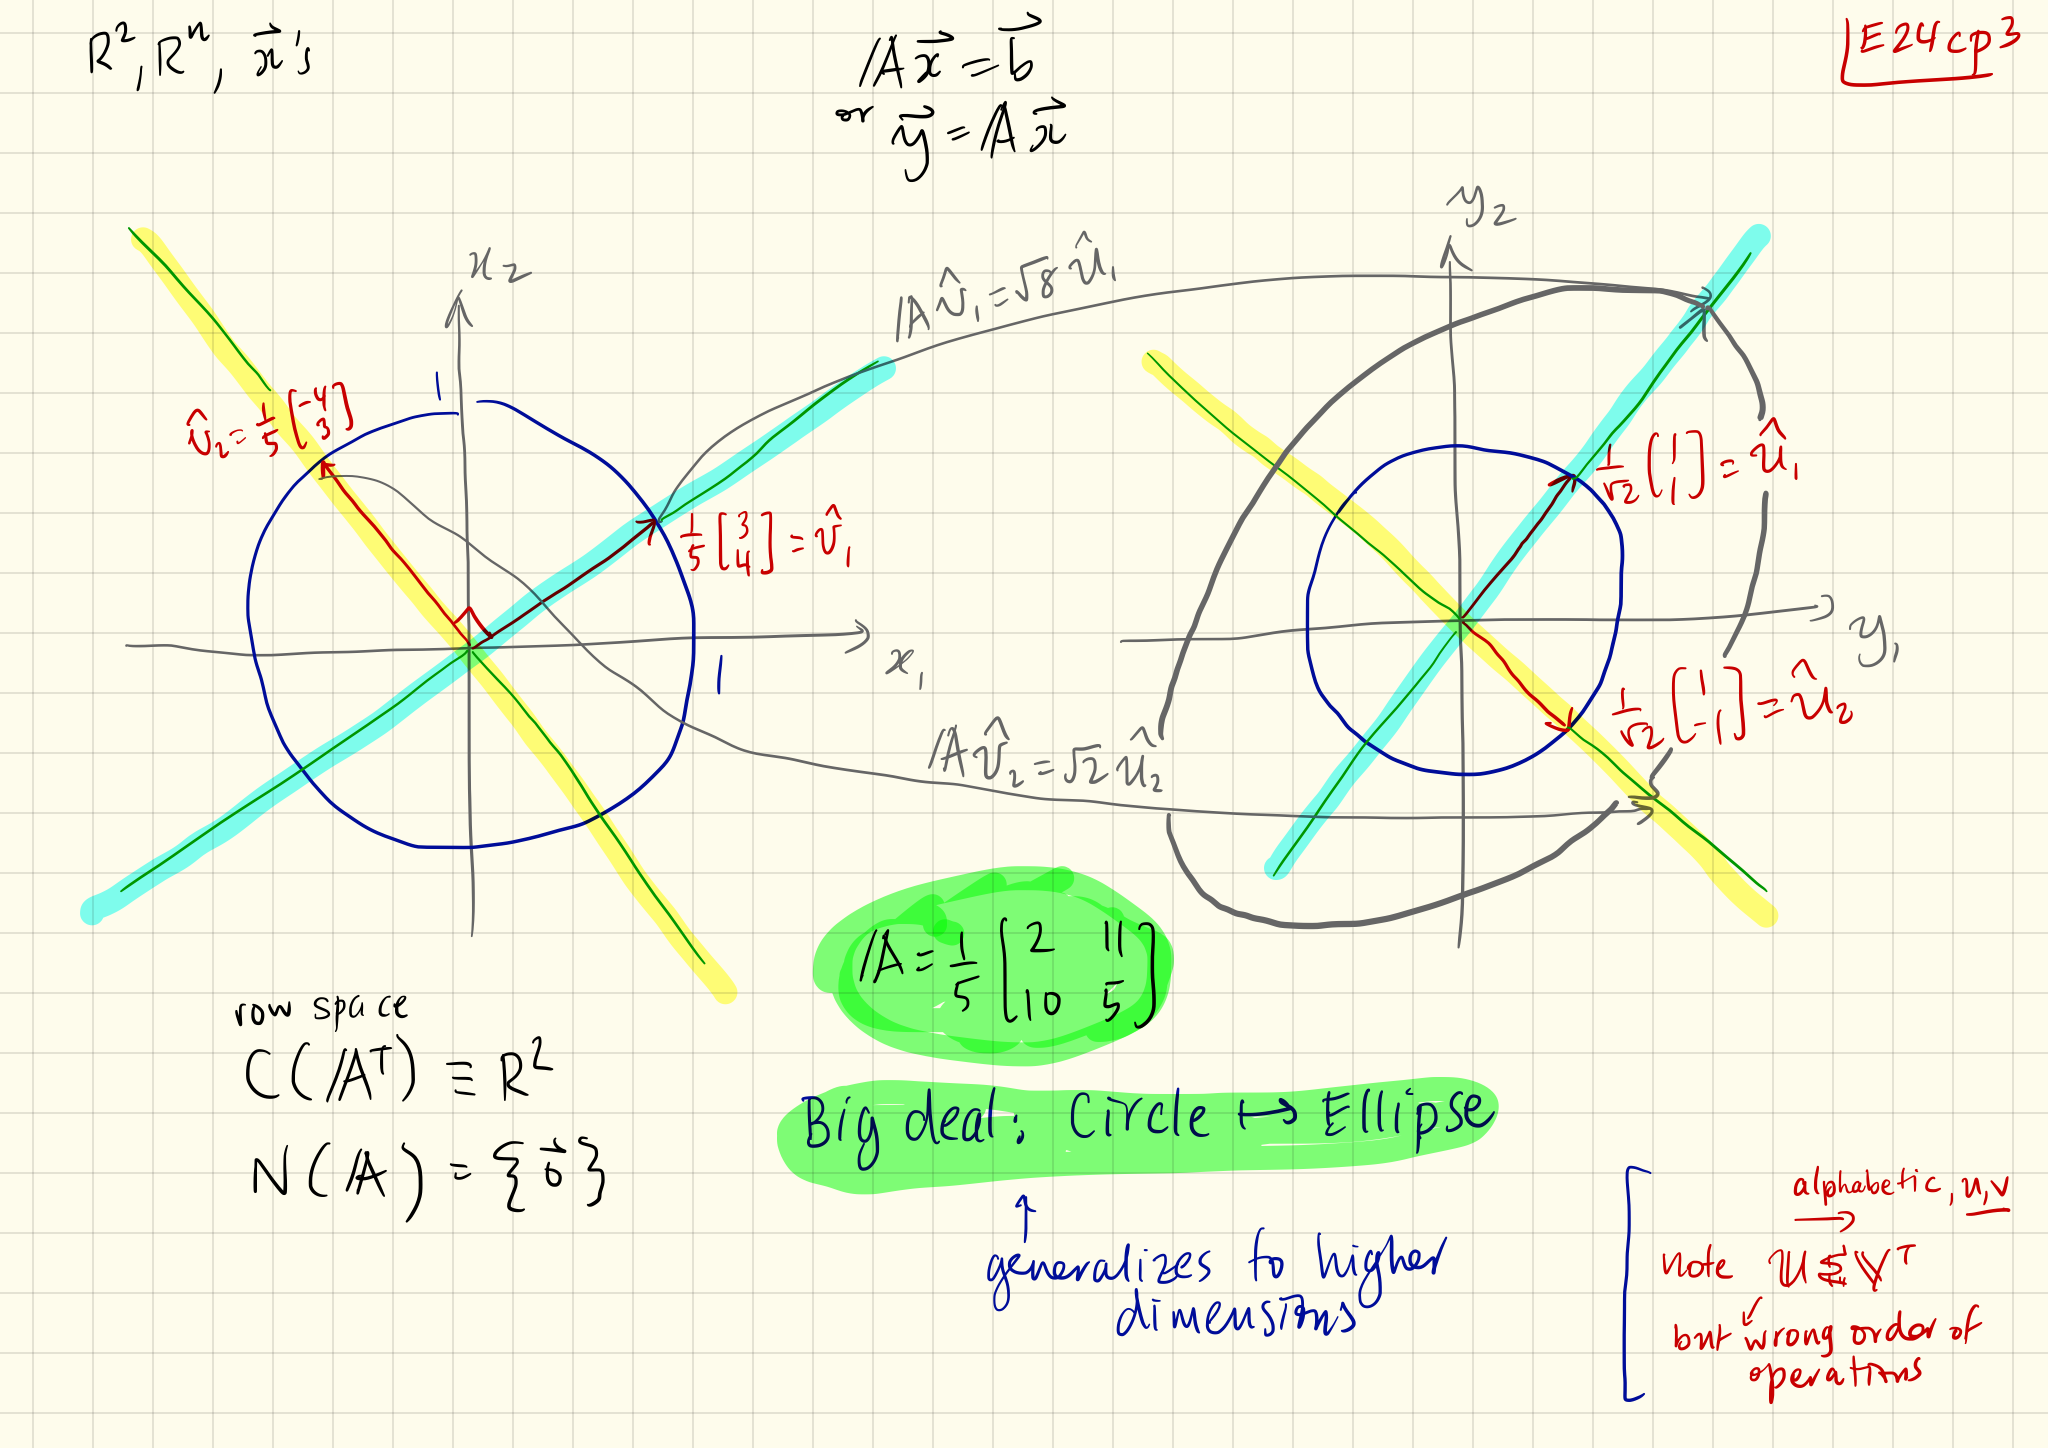 R², Rⁿ, x⃗'s
A x⃗ = b⃗
or y⃗ = A x⃗
E24cp3
x₂
x₁
1
1
v̂₂ = 1/5 [-4 3]
1/5 [3 4] = v̂₁
A v̂₁ = √8 û₁
A v̂₂ = √2 û₂
y₂
y₁
1/√2 [1 1] = û₁
1/√2 [1 -1] = û₂
A = 1/5 [2 11
10 5]
row space
C(Aᵀ) ≡ R²
N(A) = {0⃗}
Big deal: Circle ↦ Ellipse
↑
generalizes to higher
dimensions
alphabetic, u,v
note U Σ Vᵀ
but wrong order of
operations